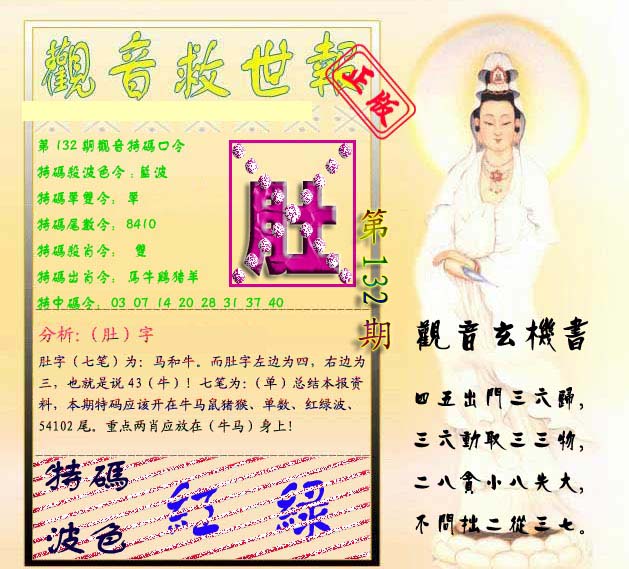 觀音救世報
正版
第132期觀音特碼口令
特碼殺波色令：藍波
特碼單雙令：單
特碼尾數令：8410
特碼殺肖令：雙
特碼出肖令：馬牛鷄猪羊
特中碼令：03 07 14 20 28 31 37 40
肚
第132期
分析:（肚）字
肚字（七笔）为：马和牛。而肚字左边为四，右边为
三，也就是说43（牛）！七笔为：（单）总结本报资
料，本期特码应该开在牛马鼠猪猴、单数、红绿波、
54102尾。重点两肖应放在（牛马）身上！
特碼
波色
红 绿
觀音玄機書
四五出門三六歸，
三六動取三三物，
二八貪小八失大，
不問拙二從三七。